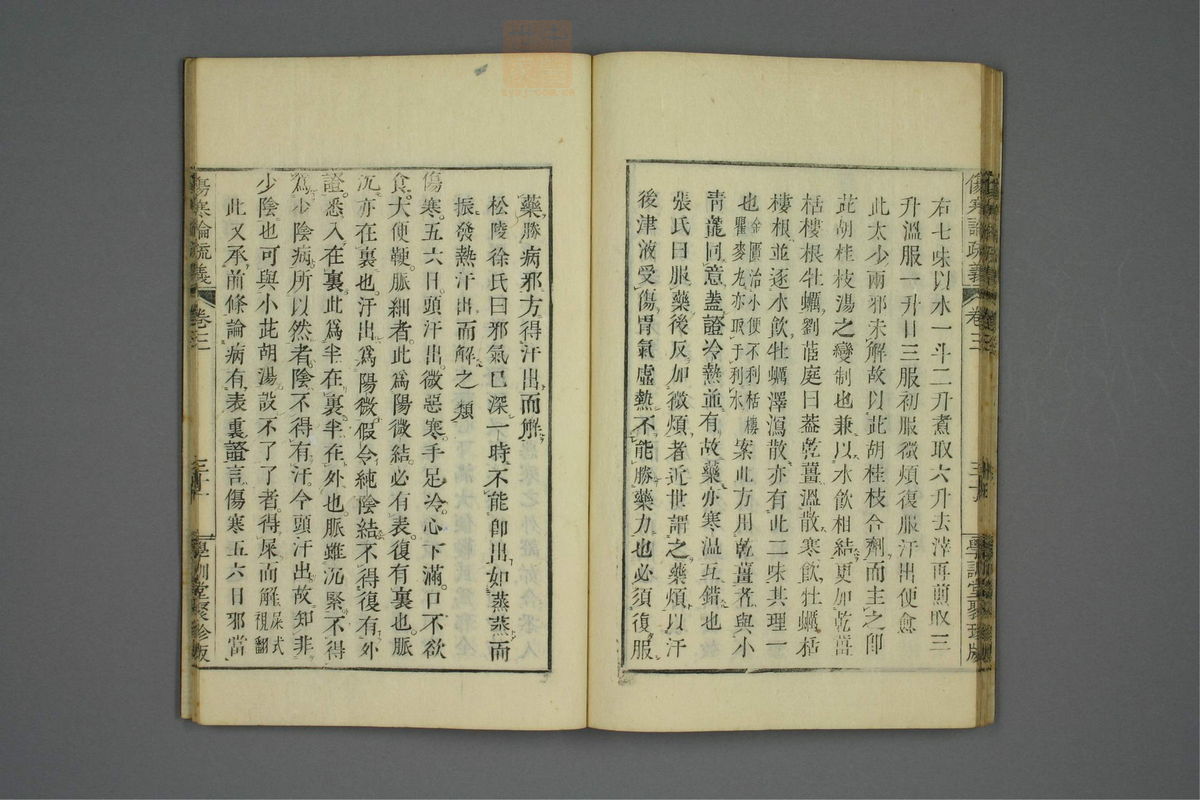 右七味以水一斗二升煮取六升去滓再煎取三
升溫服一升日三服初服微煩復服汗出便愈
此太少兩邪未解故以茈胡桂枝合劑而主之卽
茈胡桂枝湯之變制也兼以水飮相結更加乾薑
栝樓根牡蠣劉茝庭曰蓋乾薑溫散寒飮牡蠣栝
樓根並逐水飮牡蠣澤瀉散亦有此二味其理一
也金匱治小便不利栝樓瞿麥丸亦取于利水案此方用乾薑者與小
靑龍同意蓋證冷熱並有故藥亦寒温互錯也
張氏曰服藥後反加微煩者近世謂之藥煩以汗
後津液受傷胃氣虛熱不能勝藥力也必須復服
傷寒論疏義
卷三
三十
學訓堂聚珍版
藥勝病邪方得汗出而觧
松陵徐氏曰邪氣已深一時不能卽出如蒸蒸而
振發熱汗出而解之類
傷寒五六日頭汗出微惡寒手足冷心下滿口不欲
食大便鞕脈細者此爲陽微結必有表復有裏也脈
沉亦在裏也汗出爲陽微假令純陰結不得復有外
證悉入在裏此爲半在裏半在外也脈雖沉緊不得
爲少陰病所以然者陰不得有汗今頭汗出故知非
少陰也可與小茈胡湯設不了了者得屎而解屎式視翻
此又承前條論病有表裏證言傷寒五六日邪當
傷寒論疏義
卷三
三十一
學訓堂聚珍版